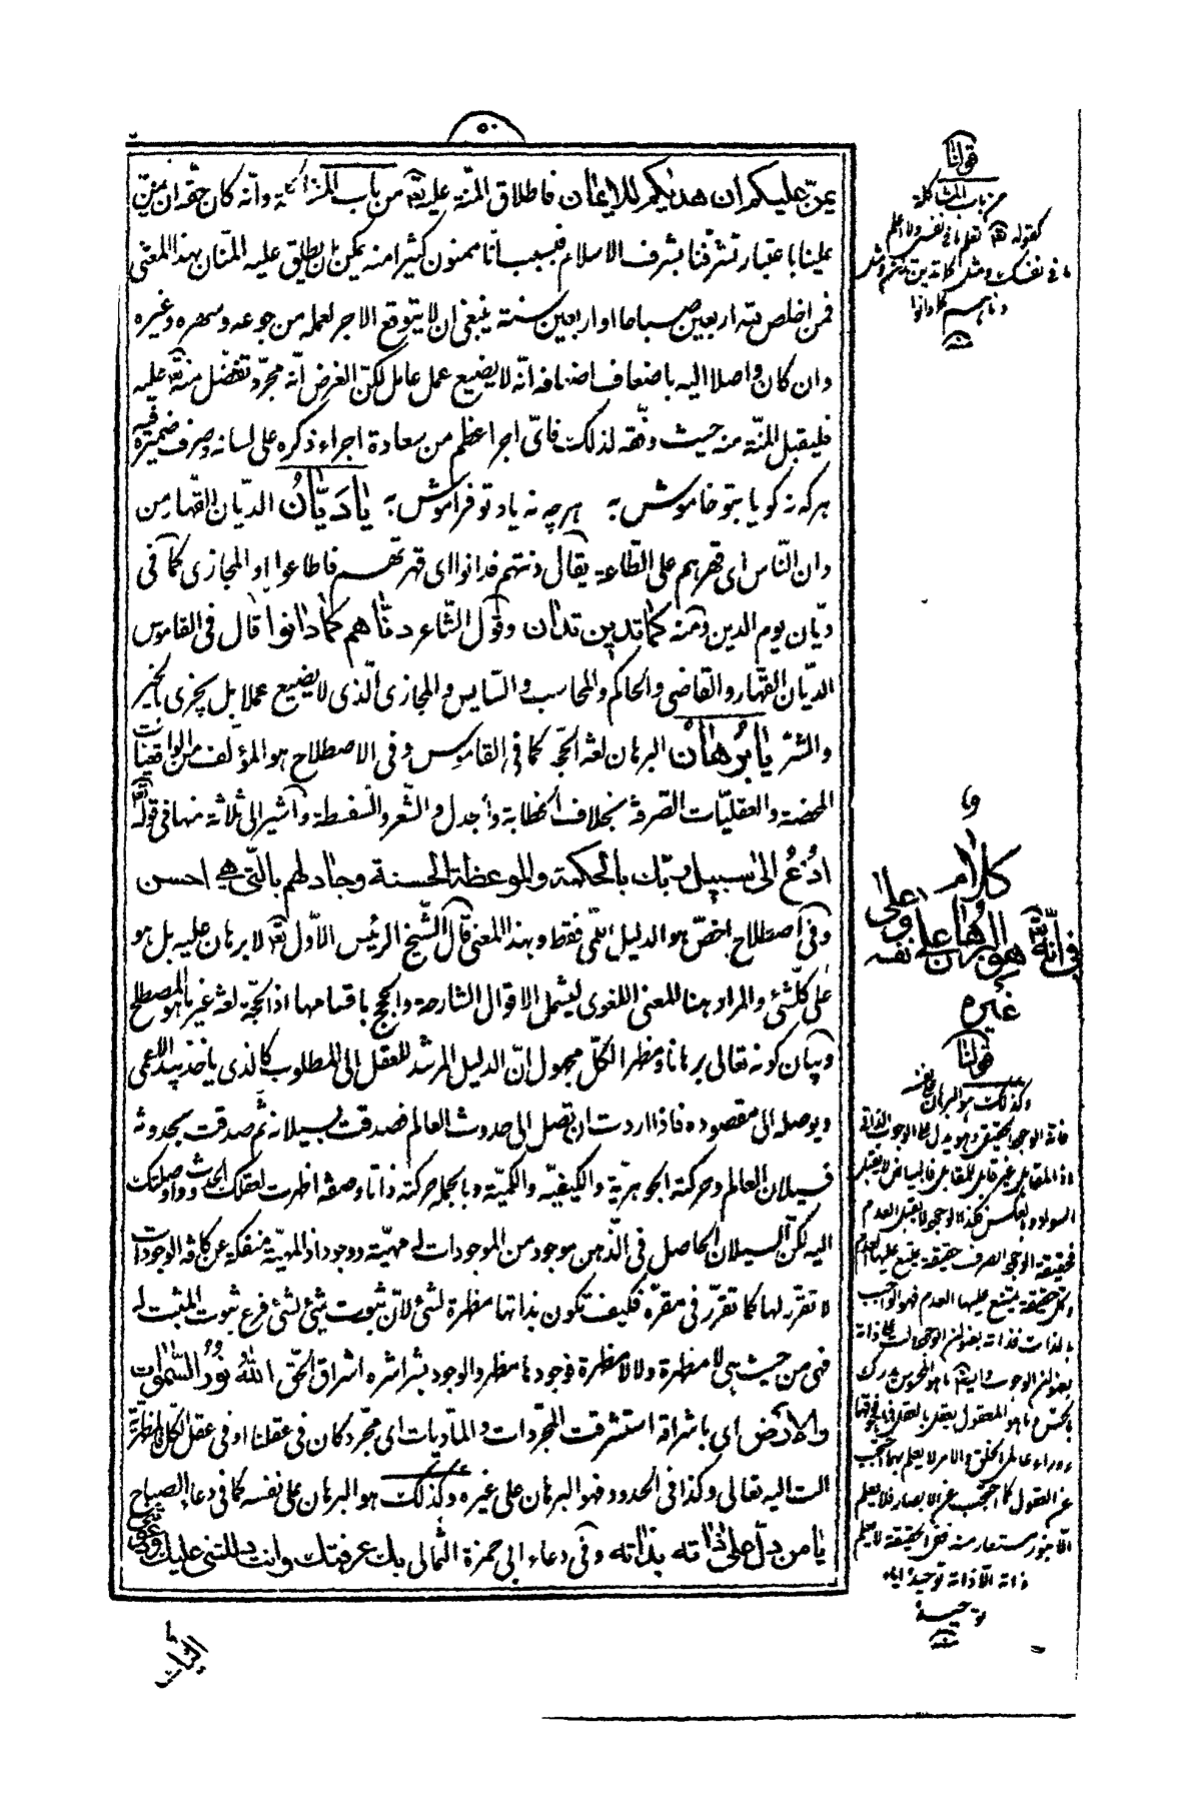 ٥٠
يمنّ عليكم ان هديكم للايمان فاطلاق المنّة عليه تع من باب المشاكلة وانّه كان حقّه ان يمنّ
علينا باعتبار تشرّفنا بشرف الاسلام فبسبب انّا ممنون كثيرا منه يمكن ان يطلق عليه المنّان بهذا المعنى
فمن اخلص لله اربعين صباحا او اربعين سنة ينبغى ان لا يتوقع الاجر لعمله من جوعه وسهره وغيره
وان كان واصلا اليه باضعاف اضعافه انّه لا يضيع عمل عامل لكنّ الغرض انّه مجرّد تفضّل منه تع عليه
فليقبل المنّة منه حيث وفّقه لذلك فاىّ اجر اعظم من سعادة اجراء ذكره على لسانه وصرف ضميره فيه
هر كه نه گويا بتو خاموش به هر چه نه ياد تو فراموش به يا دَيّانُ الديّان القهّار من
دان النّاس اى قهرهم على الطّاعة يقال دنتهم فدانوا اى قهرتهم فاطاعوا او المجازى كما فى
ديّان يوم الدين ومنه كما تدين تدان وقول الشّاعر دنّاهم كما دانوا قال فى القاموس
الديّان القهّار والقاضى والحاكم والمحاسب والسّايس والمجازى الّذى لا يضيع عملا بل يجزى بالخير
والشرّ يا بُرْهانُ البرهان لغة الحجّة كما فى القاموس وفى الاصطلاح هو المؤلّف من الواقعيّات
المحضة والعقليّات الصّرفة بخلاف الخطابة والجدل والشّعر والسّفسطة واشير الى ثلاثة منها فى قوله تع
ادْعُ الى سبيل ربّك بالحكمة والموعظة الحسنة وجادلهم بالّتى هى احسن
وفى اصطلاح اخصّ هو الدليل اللّمى فقط وبهذا المعنى قال الشّيخ الرئيس الاوّل تع لا برهان عليه بل هو
على كلّ شئ والمراد هنا المعنى اللغوى ليشمل الاقوال الشارحة والحجج باقسامها اذ الحجّة لغة غير ما هو المصطلح
وبيان كونه تعالى برهانا ومظهر الكلّ مجهول انّ الدليل المرشد للعقل الى المطلوب كالذى ياخذ بيد الاعمى
ويوصله الى مقصوده فاذا اردت ان تصل الى حدوث العالم فصدقت بسيلانه ثمّ صدقت بحدوثه
فسيلان العالم وحركته الجوهريّة والكيفيّة والكميّة وبالجملة حركته ذاتا وصفة اظهرت لعقلك الحدوث واوصلتك
اليه لكنّ السيلان الحاصل فى الذّهن موجود من الموجودات له مهيّة ووجود اذ المهيّة منفكّة عن كافّة الوجودات
لا تقرّر لها كما تقرّر فى مقرّه فكيف تكون بذاتها مظهرة لشئ لانّ ثبوت شئ لشئ فرع ثبوت المثبت له
فهى من حيث هى لا مظهرة ولا لا مظهرة فوجودها مظهر والوجود بشراشره اشراق الحقّ اللهُ نُورُ السَّمواتِ
والاَرْضِ اى باشراقه استشرقت المجرّدات والمادّيات اى مجرّد كان فى عقلنا او فى عقل الكلّ
اليه تعالى وكذا فى الحدود فهو البرهان على غيره وكذلك هو البرهان على نفسه كما فى دعاء الصباح
يا من دلّ على ذاته بذاته وفى دعاء ابى حمزة الثّمالى بك عرفتك وانت دللتنى عليك ودعوتنى
اليك
قولنا
من باب المشاكلة
كقوله تع تعلم ما فى نفسى ولا اعلم
ما فى نفسك ومثل كما تدين تدان ومثل
دنّاهم كما دانوا
منه
كلام
فى انّه تع هو البرهان على نفسه وعلى
غيره
قولنا
وكذلك هو البرهان على نفسه
فانّه الوجود الحقيقى وهو يدلّ على الوجوب الذاتى
اذ المقابل غير قابل للمقابل فالبياض لا يقبل
السواد وبالعكس فكذا الوجود لا يقبل العدم
فحقيقة الوجود الصرف حقيقة يمتنع عليها العدم
وكل حقيقة يمتنع عليها العدم فهو الواجب
بالذات
عن العقول كما احتجب عن الابصار فلا يعلم
الّا بنور مستعار منه ففى الحقيقة لا يعلم
ذاته الّا ذاته توحيده ايّاه
توحيده
منه